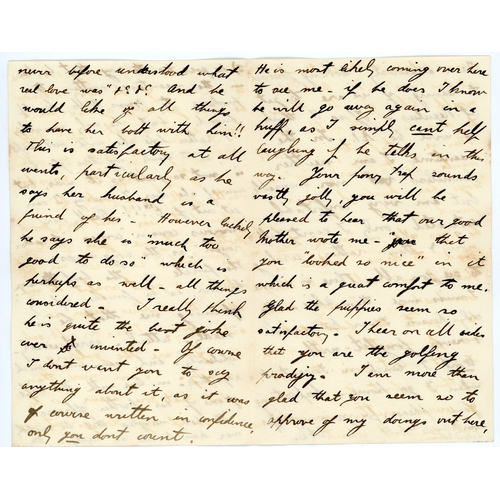 never before understood what
real love was" &c &c. And he
would like of all things
to have her bolt with him!!
This is satisfactory at all
events, particularly as he
says her husband is a
friend of his - However luckily
he says she is "much too
good to do so" which is
perhaps as well - all things
considered - I really think
he is quite the best joke
ever invented - Of course
I don't want you to say
anything about it, as it was
of course written in confidence,
only you don't count.
He is most likely coming over here
to see me - if he does I know
he will go away again in a
huff, as I simply can't help
laughing if he talks in this
way. Your pony Trap sounds
vastly jolly, you will be
pleased to hear that our good
Mother wrote me - that
you "looked so nice" in it
which is a great comfort to me.
Glad the puppies seem so
satisfactory. I hear on all sides
that you are the golfing
prodigy. I am more than
glad that you seem so to
approve of my doings out here,